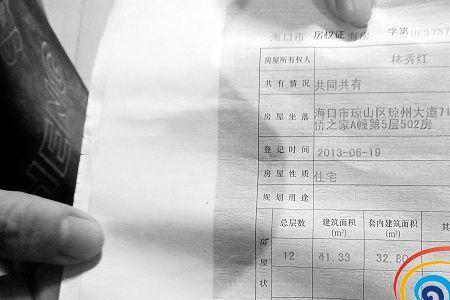 海口市 房权证 海房 字第 HK3737
房屋所有权人 林秀红
共有情况 共同共有
房屋坐落 海口市琼山区琼州大道71
侨之家A幢第5层502房
登记时间 2013-06-19
房屋性质 住宅
规划用途
房屋状 总层数 建筑面积(m²) 套内建筑面积(m²) 其
12 41.33 32.80